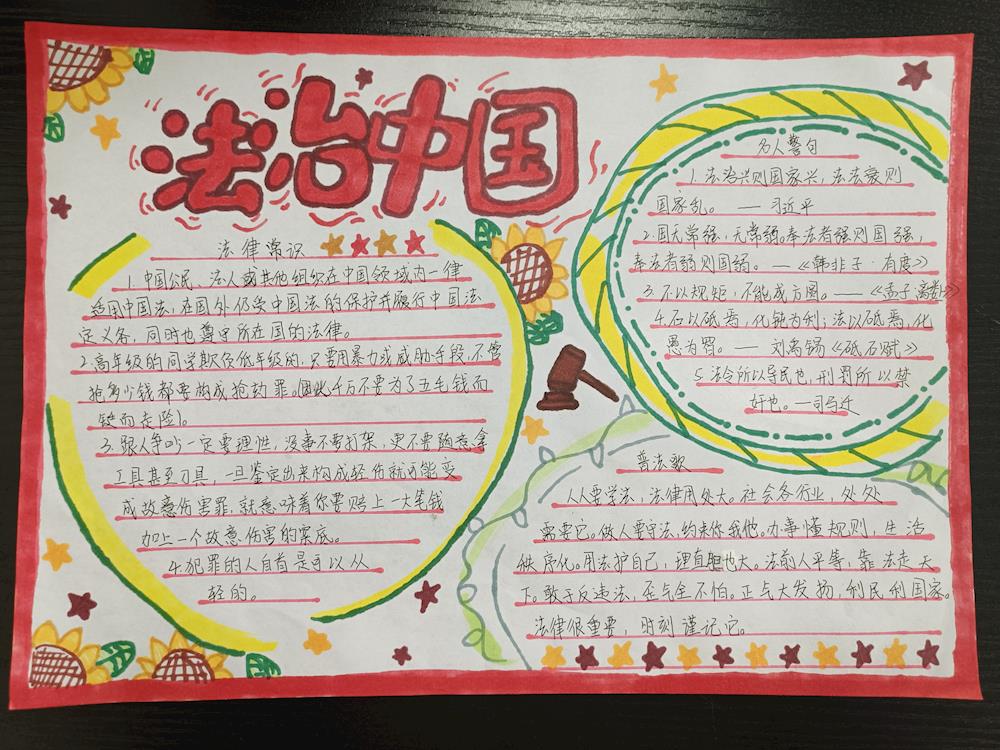 法治中国
法律常识
1.中国公民、法人或其他组织在中国领域内一律
适用中国法,在国外仍受中国法的保护并履行中国法
定义务,同时也尊守所在国的法律。
2.高年级的同学欺负低年级的,只要用暴力或威胁手段,不管
抢多少钱都要构成抢劫罪。因此千万不要为了五毛钱而
铤而走险!。
3.跟人争吵一定要理性,没事不要打架,更不要随意拿
工具甚至刀具,一旦鉴定出来构成轻伤就可能变
成故意伤害罪,就意味着你要赔上一大笔钱
加上一个故意伤害的案底。
4.犯罪的人自首是可以从
轻的。
名人警句
1.法治兴则国家兴,法治衰则
国家乱。——习近平
2.国无常强,无常弱。奉法者强则国强,
奉法者弱则国弱。——《韩非子·有度》
3.不以规矩,不能成方圆。——《孟子·离娄》
4.石以砥焉,化钝为利;法以砥焉,化
愚为智。——刘禹锡《砥石赋》
5.法令所以导民也,刑罚所以禁
奸也。—司马迁
普法歌
人人要学法,法律用处大。社会各行业,处处
需要它。做人要守法,约束你我他。办事懂规则,生活
秩序化。用法护自己,理直胆也大。法前人平等,靠法走天
下。敢于反违法,歪气全不怕。正气大发扬,利民利国家。
法律很重要,时刻谨记它。